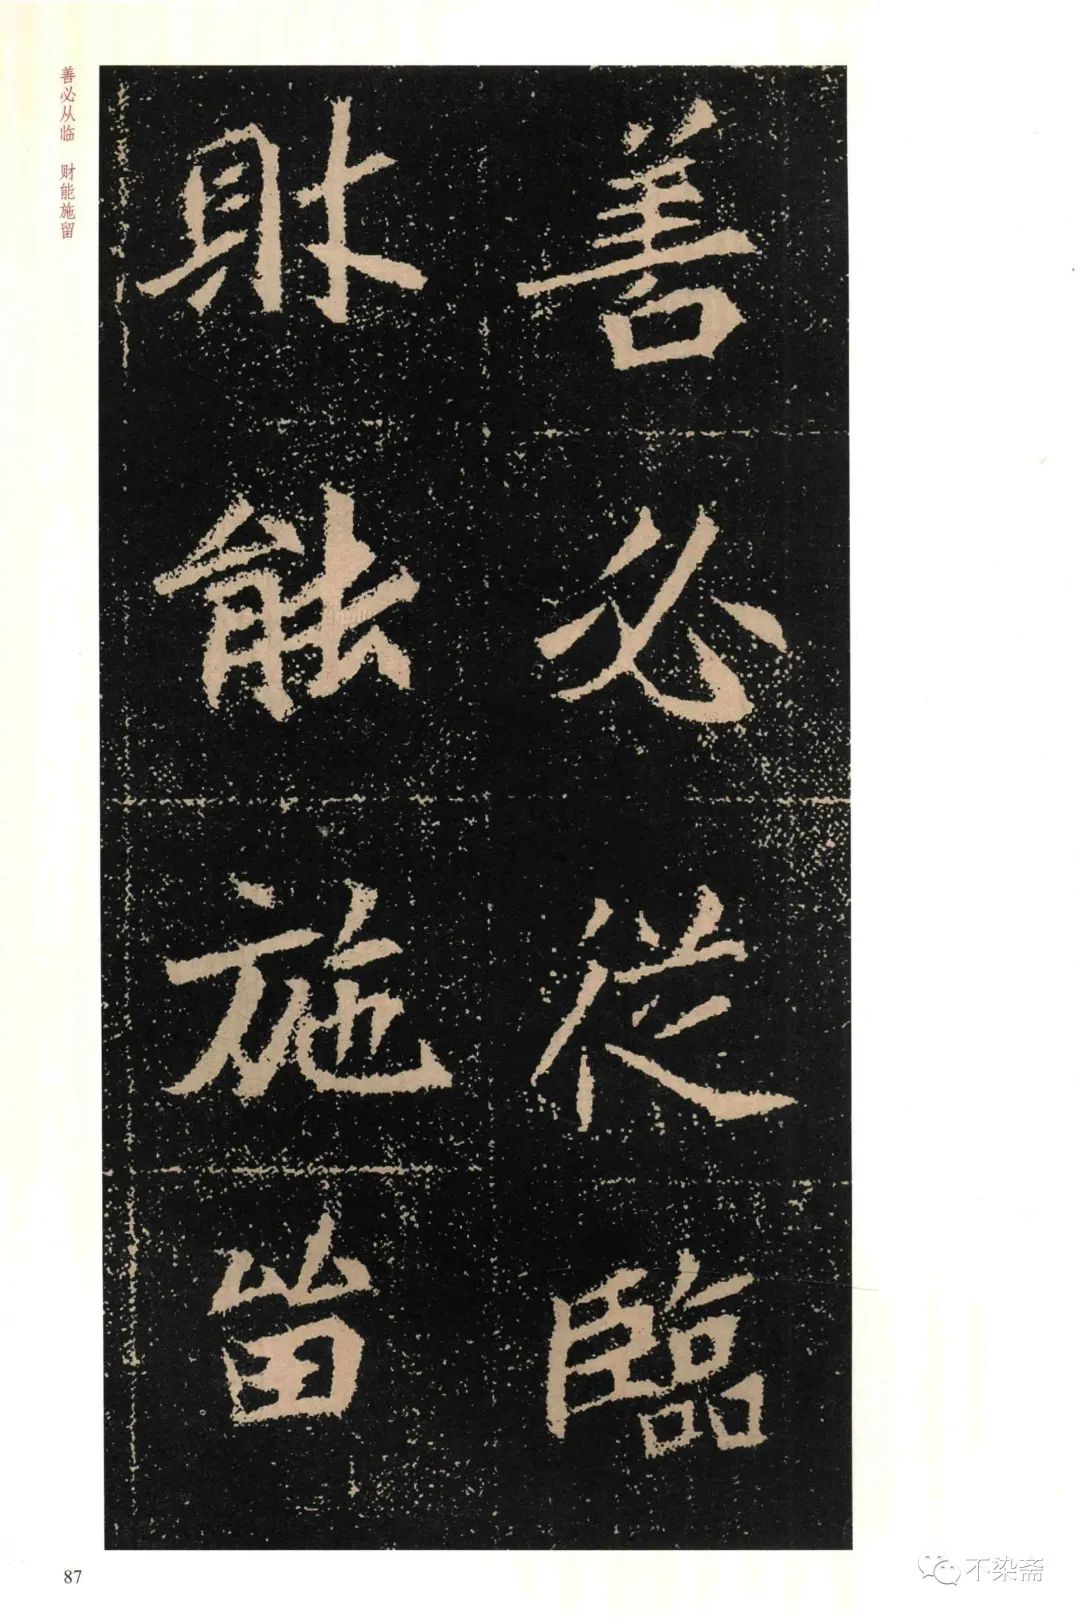 善必從臨
財能施留
善必从临 财能施留
87
不染斋